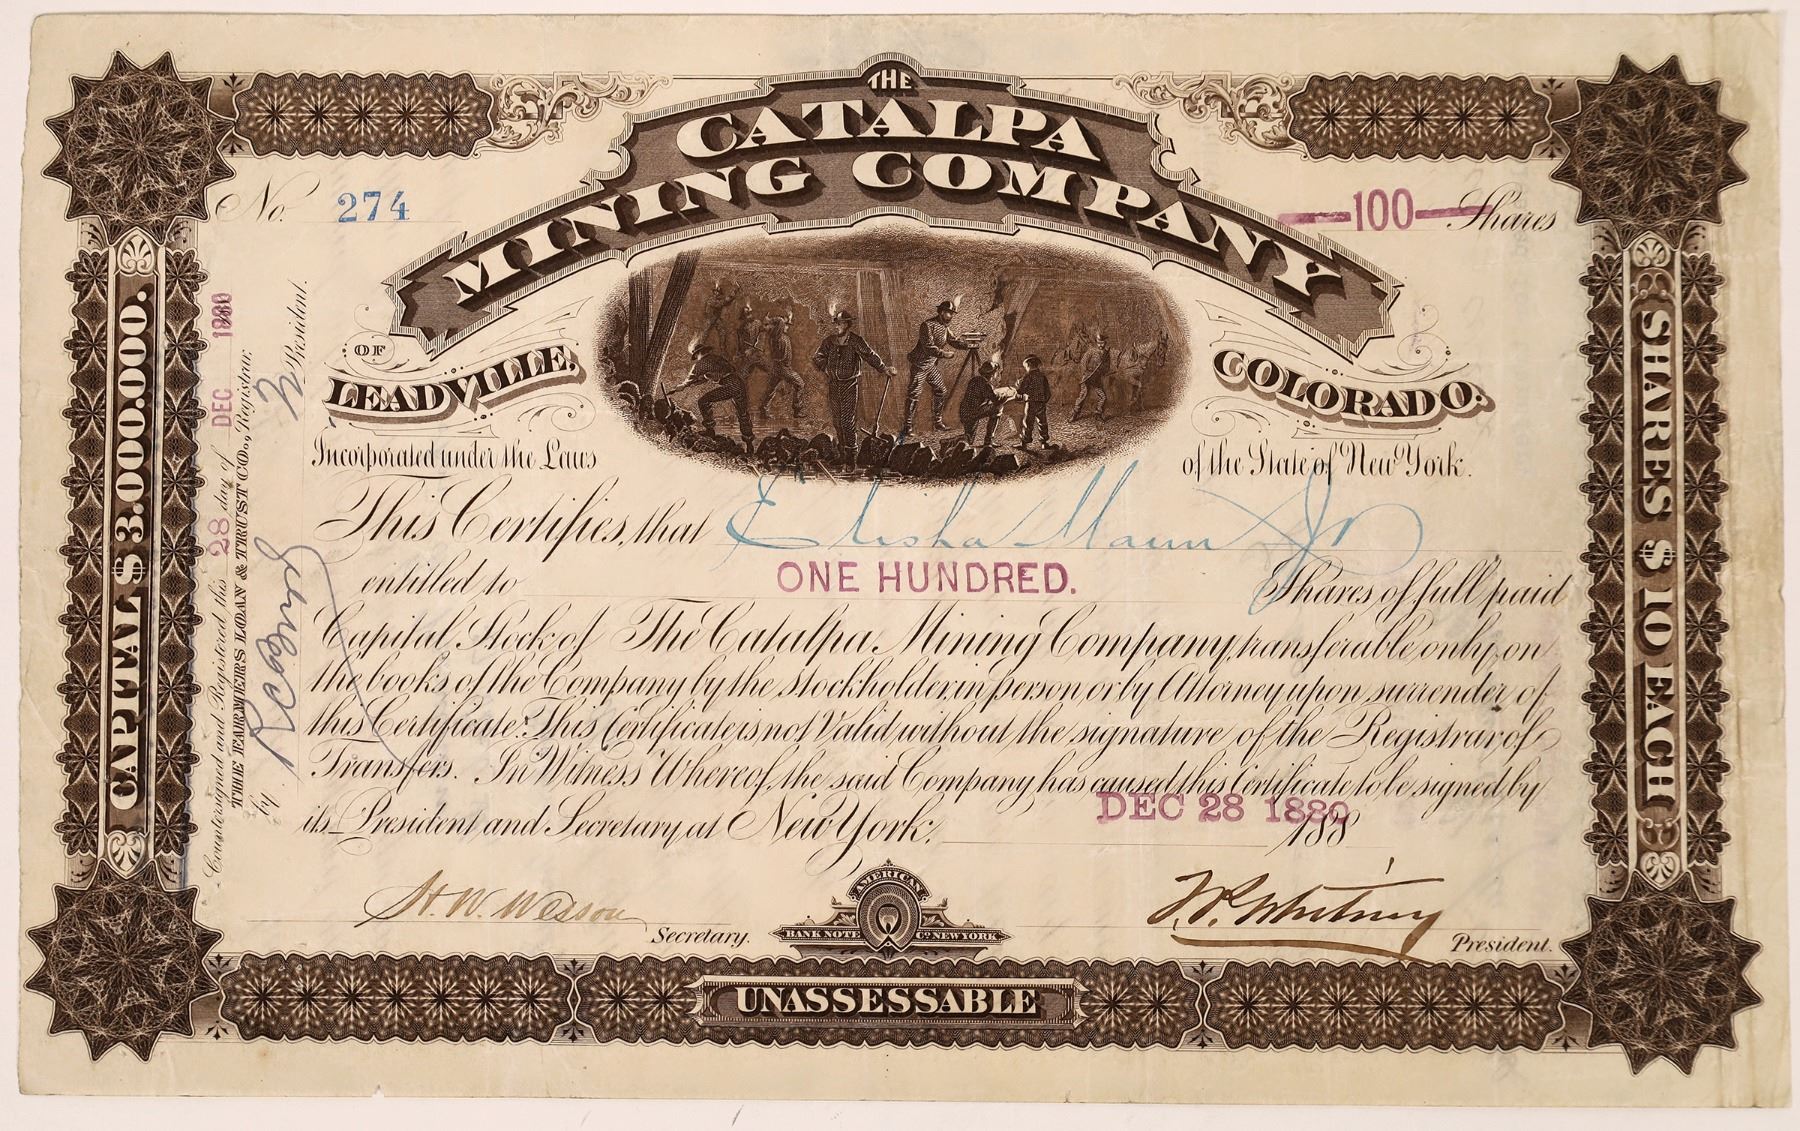 THE
CATALPA
MINING COMPANY
No. 274
—100— Shares
OF
LEADVILLE, COLORADO.
Incorporated under the Laws of the State of New York.
This Certifies, that Elisha Mann Jr
entitled to ONE HUNDRED. Shares of full paid
Capital Stock of The Catalpa Mining Company, transferable only on
the books of the Company by the stockholder, in person or by Attorney upon surrender of
this Certificate. This Certificate is not Valid without the signature of the Registrar of
Transfers. In Witness Whereof, the said Company has caused this Certificate to be signed by
its President and Secretary, at New York, DEC 28 1880 188
H. W. Wesson Secretary.
AMERICAN
BANK NOTE CO. NEW YORK
Whitney President.
UNASSESSABLE
CAPITAL $3.000.000.
SHARES $10 EACH
Countersigned and Registered this 28 day of DEC 1880
THE FARMERS LOAN & TRUST CO., Registrar.
by President.